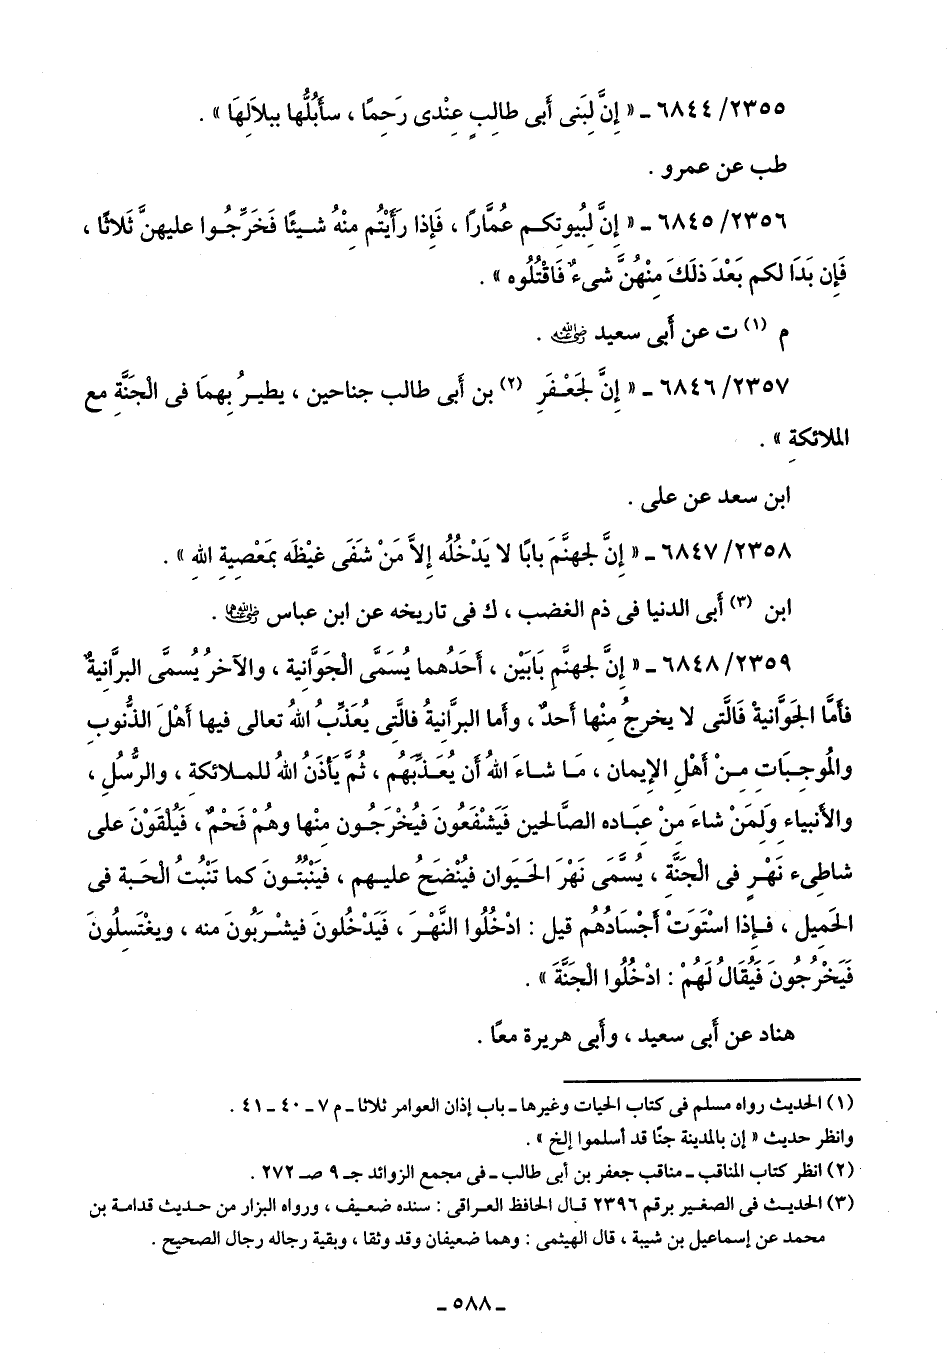 ٢٣٥٥/ ٦٨٤٤ ـ « إِنَّ لِبَنى أَبى طالِبٍ عِنْدى رَحِمًا ، سأَبُلُّها ببِلاَلِهَا » .
طب عن عمرو .
٢٣٥٦/ ٦٨٤٥ ـ « إِنَّ لِبُيوتكـم عُمَّارًا ، فَإِذا رَأَيْتُم مِنْهُ شـيئًا فَحَرِّجُـوا عليهنَّ ثَلاثًا ،
فَإِن بَدَا لكم بَعْدَ ذلَكَ مِنْهُنَّ شىءٌ فَاقْتُلُوه » .
م (١) ت عن أَبى سعيد رضي الله عنه .
٢٣٥٧/ ٦٨٤٦ ـ « إِنَّ لجَعْـفَرِ (٢) بن أَبى طالب جناحين ، يطيرُ بِهِمَا فى الْجَنَّةِ مع
الملائكةِ » .
ابن سعد عن على .
٢٣٥٨/ ٦٨٤٧ ـ « إِنَّ لجهنَّمَ بابًا لا يَدْخُلُه إِلاَّ مَنْ شَفَى غيْظَه بمَعْصِيةِ اللهِ » .
ابن (٣) أَبى الدنيا فى ذم الغضب ، ك فى تاريخه عن ابن عباس رضي الله عنهما .
٢٣٥٩/ ٦٨٤٨ ـ « إِنَّ لجهنَّمِ بَابَيْن ، أَحَدُهما يُسَمَّى الْجَوَّانية ، والآخرُ يُسمَّى البرَّانيةٌ
فأَمَّا الجَوَّانيةُ فَالَّتى لا يخرجُ مِنْها أَحدٌ ، وأَما البرَّانيةُ فالَّتى يُعَذِّبُ اللهُ تعالى فيها أَهْلَ الذُّنوبِ
والمُوجِبَاتِ مِـنْ أَهْلِ الإيمان ، مَـا شـاءَ اللهُ أَن يُعَـذِّبَهُم ، ثُمَّ يأَذَنُ اللهُ للمـلائكة ، والرُّسُلِ ،
والأنبياء وَلمَنْ شاءَ مِنْ عِبَاده الصَّالحين فَيَشْفَعُونَ فَيُخْرَجُـون مِنْها وهُمْ فَحْمٌ ، فَيُلْقَوْنَ على
شاطِىء نَهْـرٍ فى الْجَنَّة ، يُسَّمَى نَهْرَ الحَيَوان فيُنْضَحُ عليـهم ، فَينْبُتُـونَ كما تَنْبُتُ الْحَبة فى
الحَمِيل ، فـإِذا اسْتَوَتْ أَجْسَادُهُم قيل : ادْخُلُوا النَّهْـرَ ، فَيَدْخُلُونَ فيشْرَبُونَ منه ، ويغْتَسِلُونَ
فَيَخْرُجُونَ فَيُقَالُ لَهُمْ : ادْخُلُوا الْجَنَّةَ » .
هناد عن أَبى سعيد ، وأَبى هريرة معًا .
(١) الحديث رواه مسلم فى كتاب الحيات وغيرها ـ باب إذان العوامر ثلاثا ـ م ٧ ـ ٤٠ ـ ٤١ .
وانظر حديث « إن بالمدينة جنًا قد أسلموا إلخ » .
(٢) انظر كتاب المناقب ـ مناقب جعفر بن أبى طالب ـ فى مجمع الزوائد جـ ٩ صـ ٢٧٢ .
(٣) الحديث فى الصغير برقم ٢٣٩٦ قـال الحافظ العراقى : سنده ضعيف ، ورواه البزار من حـديث قدامـة بن
محمد عن إسماعيل بن شيبة ، قال الهيثمى : وهما ضعيفان وقد وثقا ، وبقية رجاله رجال الصحيح .
ـ ٥٨٨ ـ